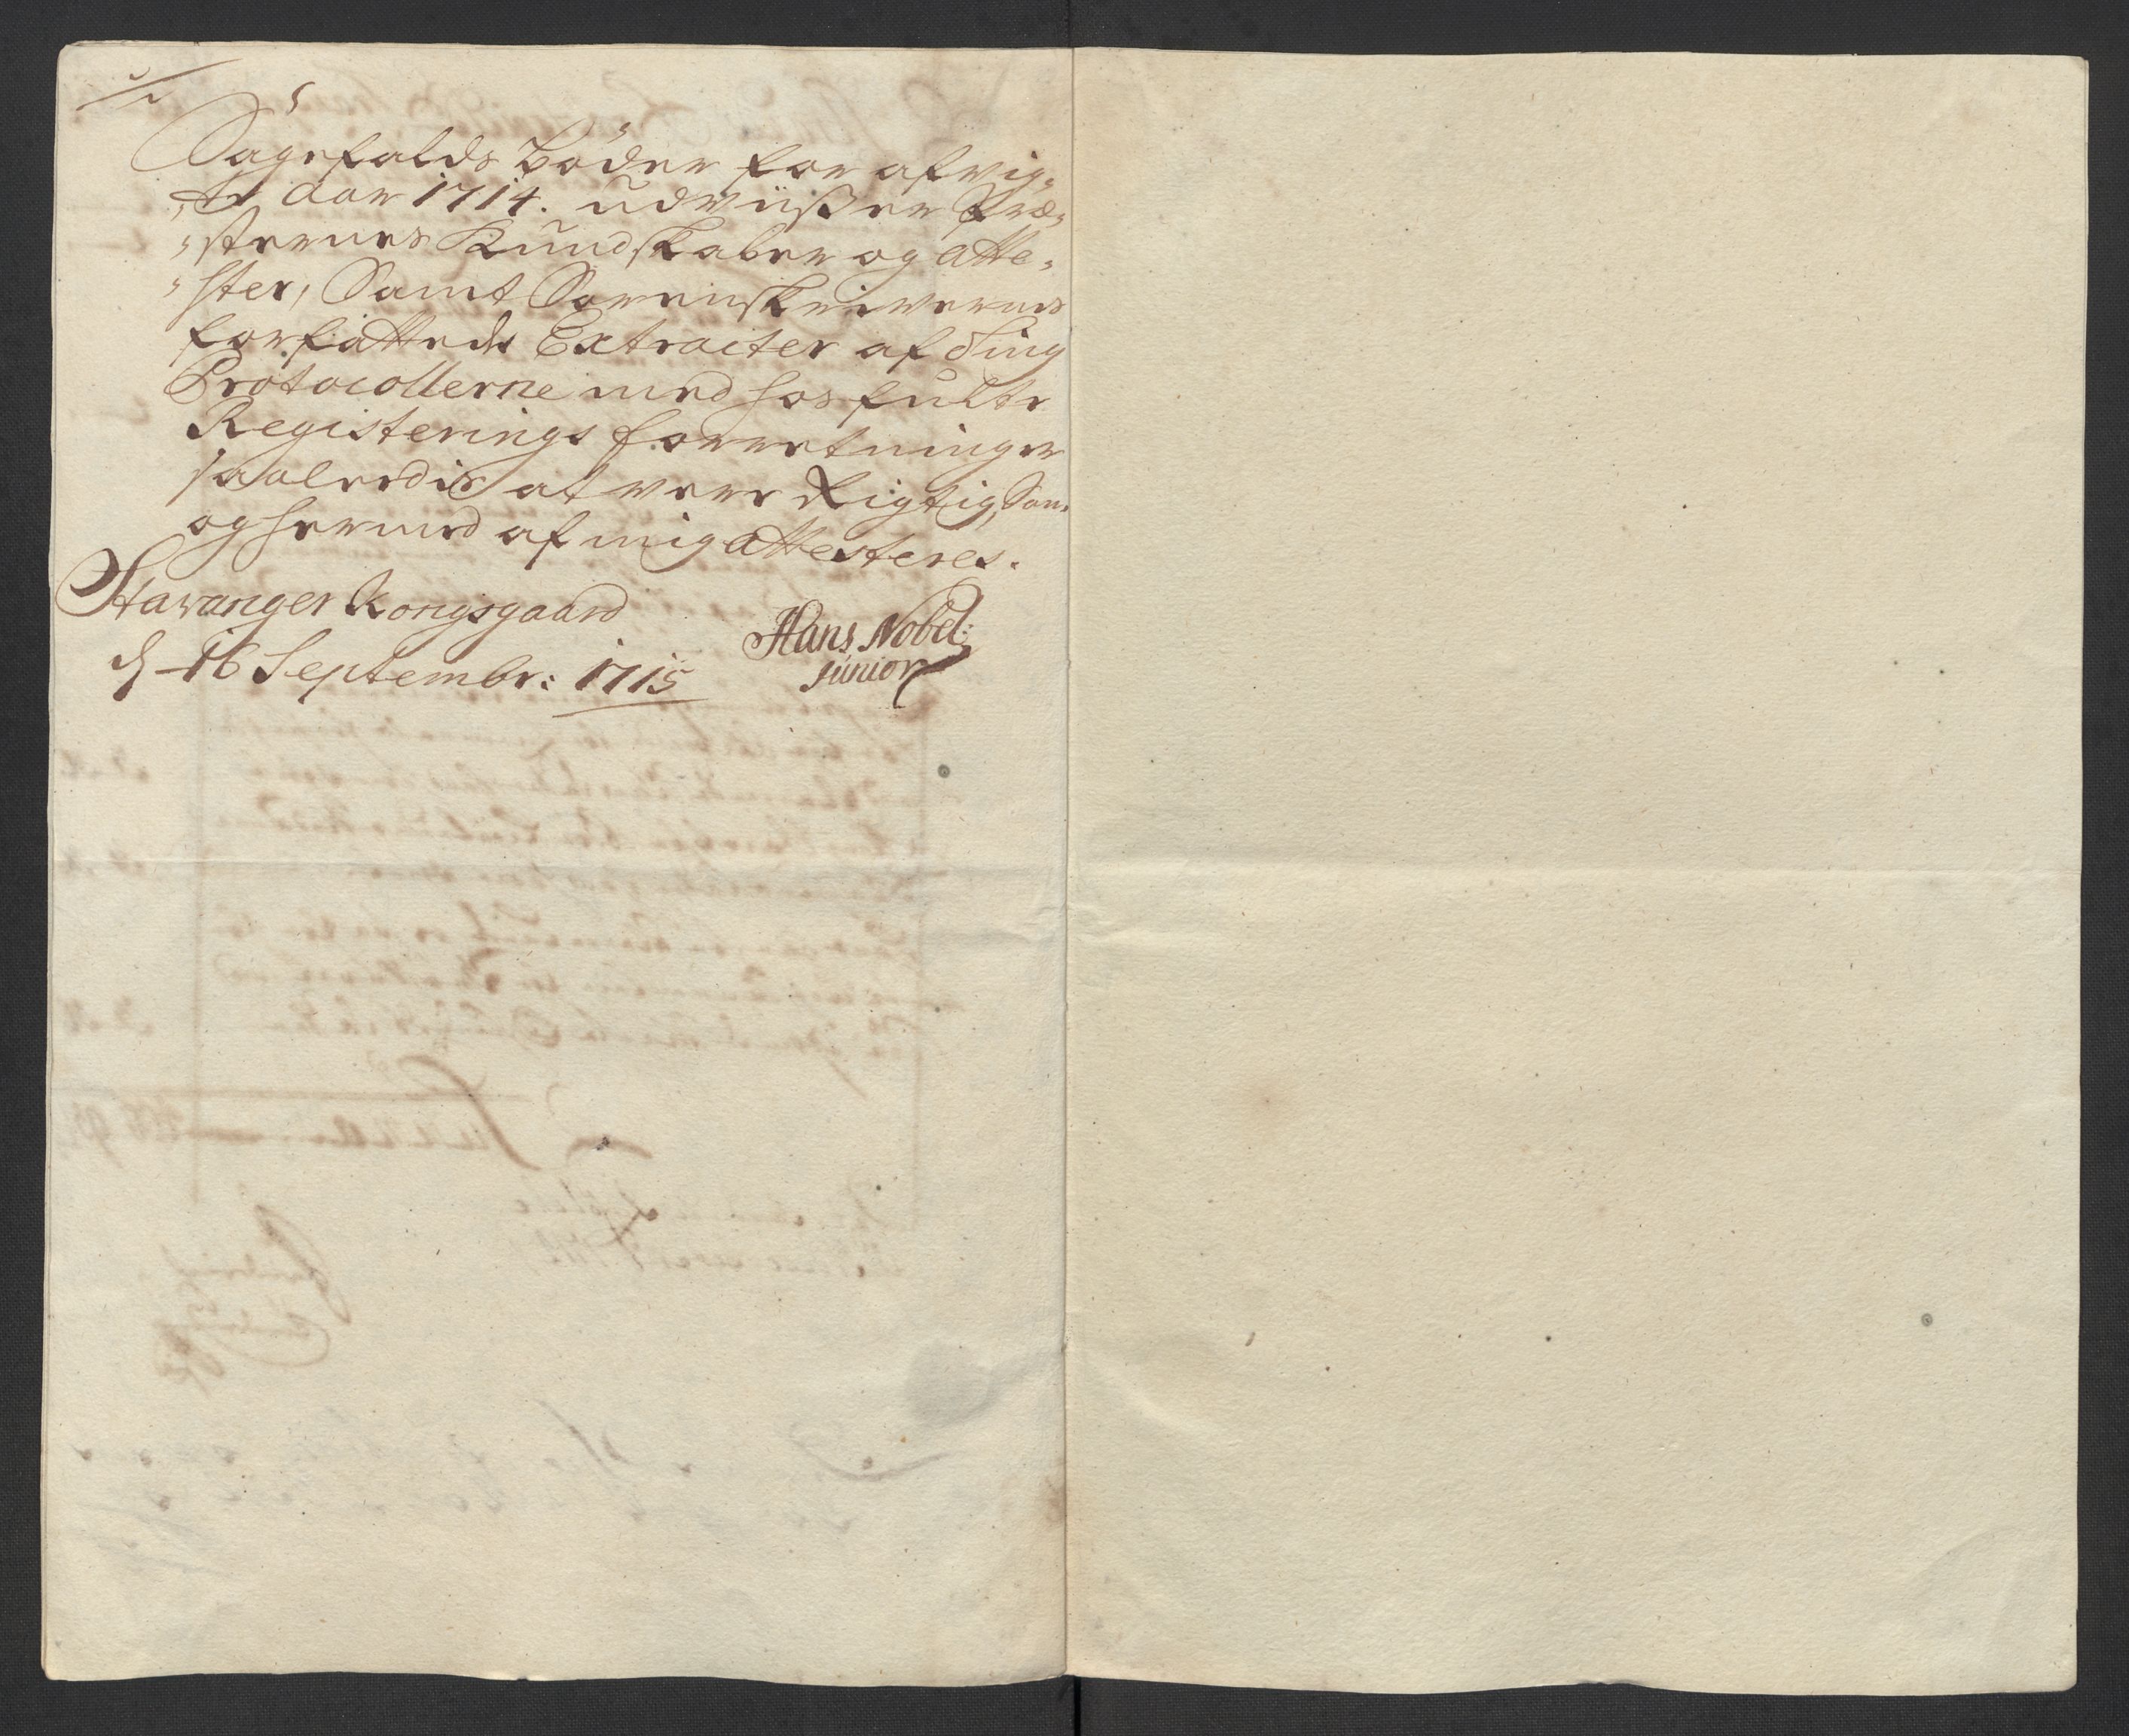 Sagefalds Bøder for afvig-
-te Aar 1714. udviißer Præ-
-sternes Kundskaber og Atte-
-ster, Samt Sorenskriverens
forfattede Extracter af Ting
Protocollerne med hosfulte
Registerings forretninger
saaledis at vere Rigtig, Som
og hermed af mig Attesteres.
Stavanger Kongsgaard
d 16 Septembr: 1715
Hans Nobel:
Junior